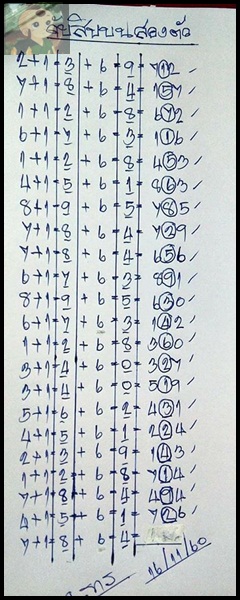 จับสิบบนสองตัว
2+1=3+6=9=712
7+1=8+6=4=157
1+1=2+6=8=672
6+1=7+6=3=116
1+1=2+6=8=453
4+1=5+6=1=863
8+1=9+6=5=785
7+1=8+6=4=729
7+1=8+6=4=656
6+1=7+6=3=891
8+1=9+6=5=630
6+1=7+6=3=142
1+1=2+6=8=360
3+1=4+6=0=327
3+1=4+6=0=519
5+1=6+6=2=431
4+1=5+6=1=224
2+1=3+6=9=143
1+1=2+6=8=714
7+1=8+6=4=494
4+1=5+6=1=726
7+1=8+6=4=
16/11/60